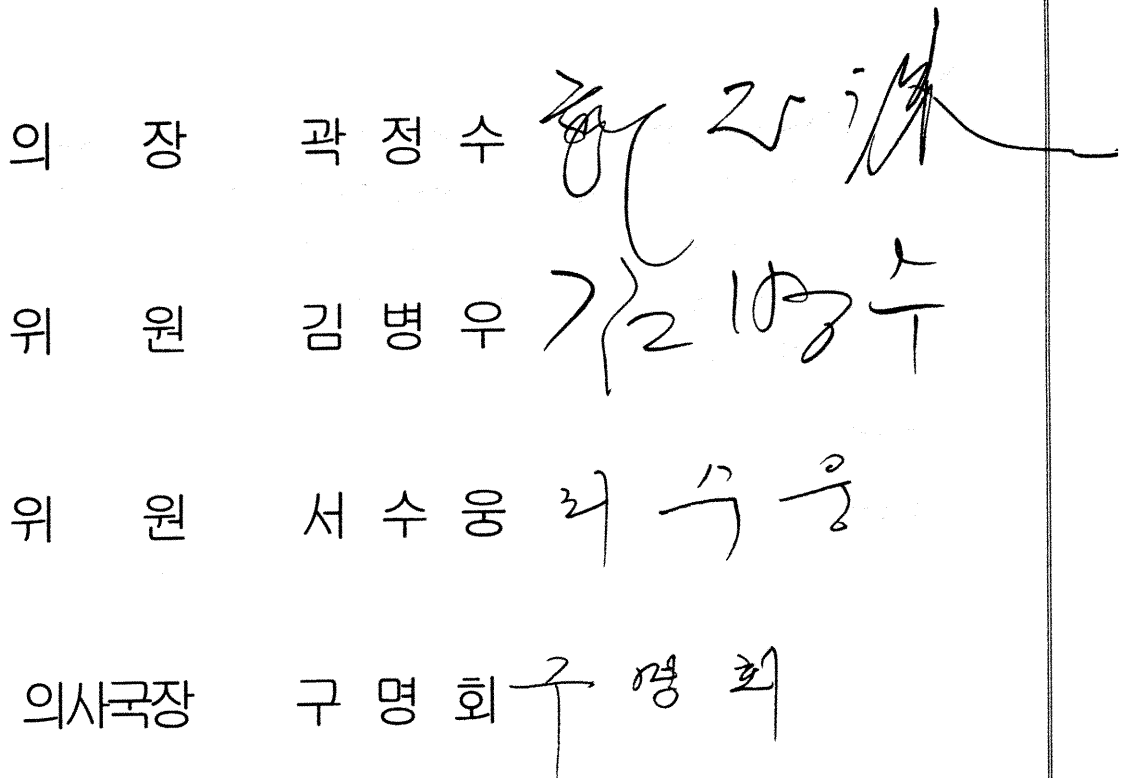 의 장 곽정수
위 원 김병우 김병우
위 원 서수웅 서수웅
의사국장 구명회 구명회